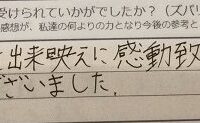 受けられていかがでしたか？（ズバリ
感想が、私達の何よりの力となり今後の参考と
出来映えに感動致
ざいました。